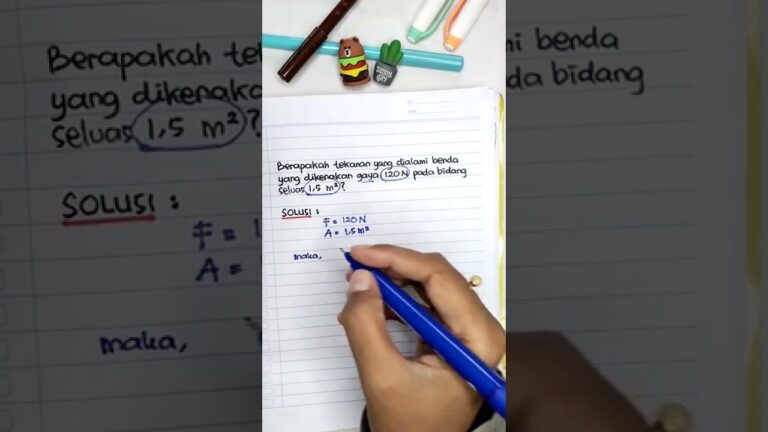 Berapakah tekanan yang dialami benda
yang dikenakan gaya 120 N pada bidang
seluas 1,5 m²?
SOLUSI :
F = 120 N
A = 1,5 m²
maka,